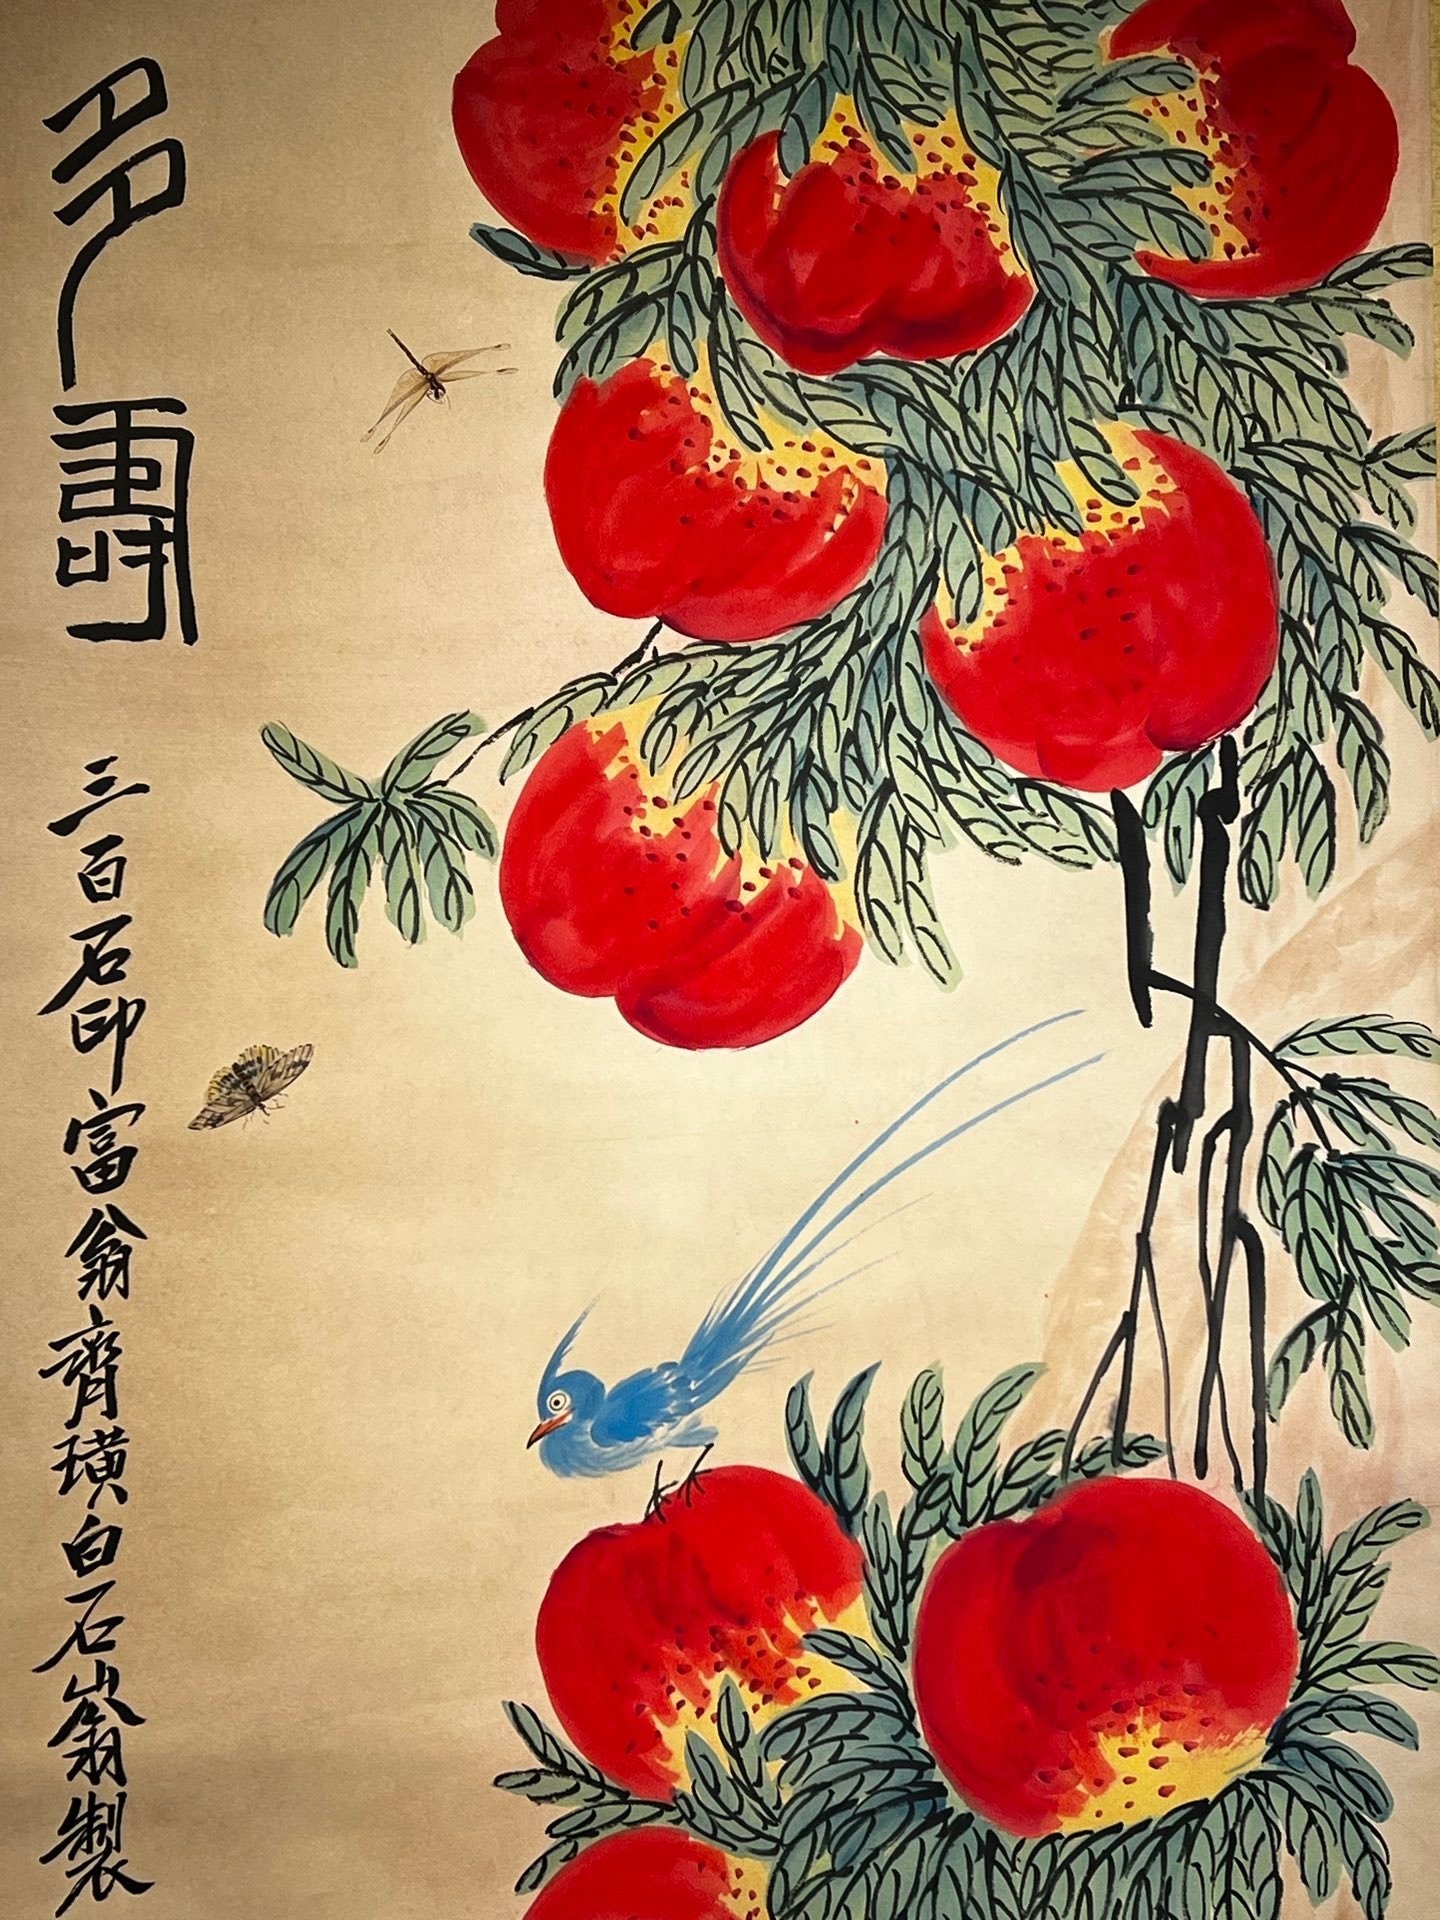 多壽
三百石印富翁齊璜白石山翁製